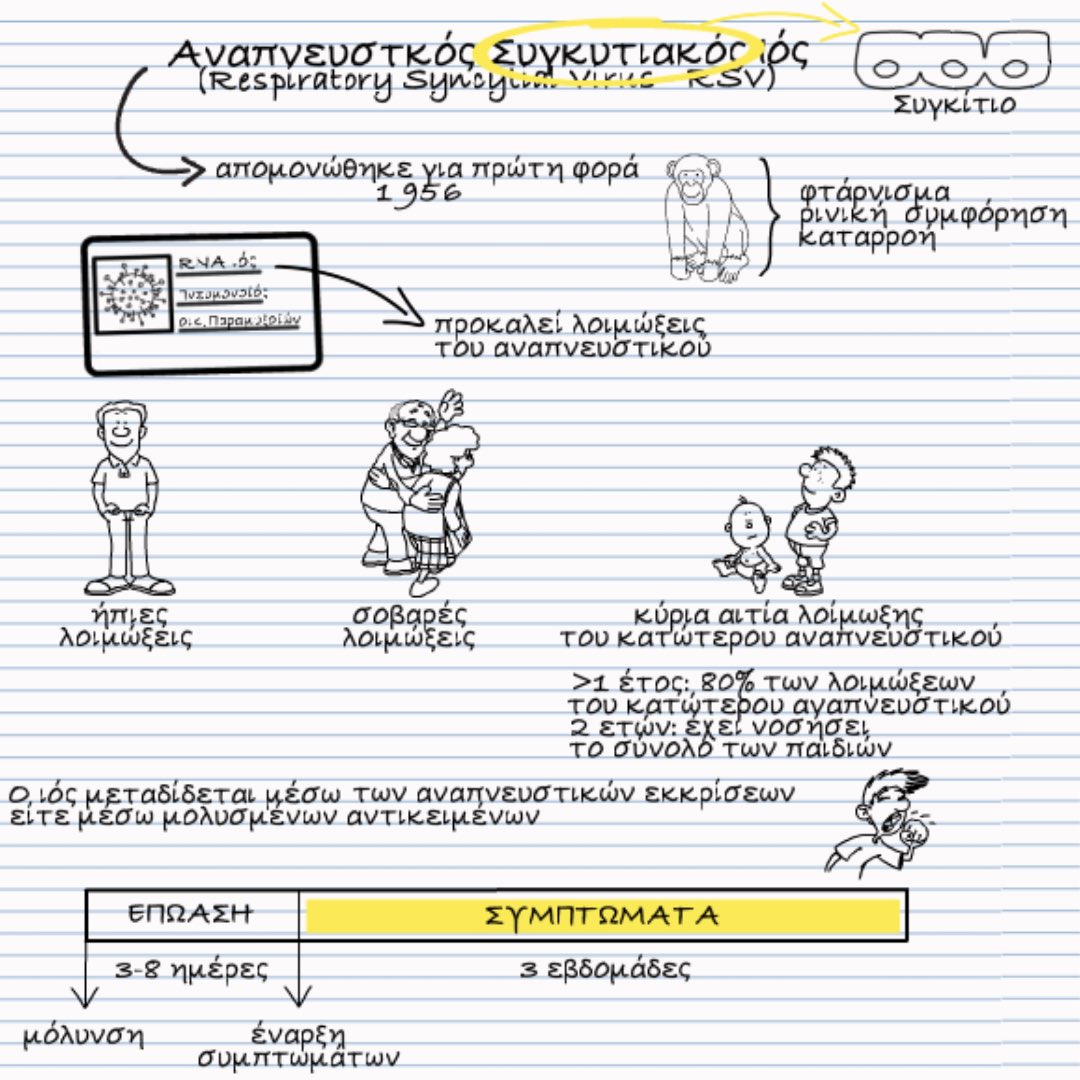 Αναπνευστκός Συγκυτιακός ιός
(Respiratory Syncytial Virus - RSV)
Συγκίτιο
απομονώθηκε για πρώτη φορά
1956
φτάρνισμα
ρινική συμφόρηση
καταρροή
RNA ιός
Πνευμονοϊός
οικ. Παραμυξοϊών
προκαλεί λοιμώξεις
του αναπνευστικού
ήπιες
λοιμώξεις
σοβαρές
λοιμώξεις
κύρια αιτία λοίμωξης
του κατώτερου αναπνευστικού
>1 έτος: 80% των λοιμώξεων
του κατώτερου αναπνευστικού
2 ετών: έχει νοσήσει
το σύνολο των παιδιών
Ο ιός μεταδίδεται μέσω των αναπνευστικών εκκρίσεων
είτε μέσω μολυσμένων αντικειμένων
ΕΠΩΑΣΗ
ΣΥΜΠΤΩΜΑΤΑ
3-8 ημέρες
3 εβδομάδες
μόλυνση
έναρξη
συμπτωμάτων